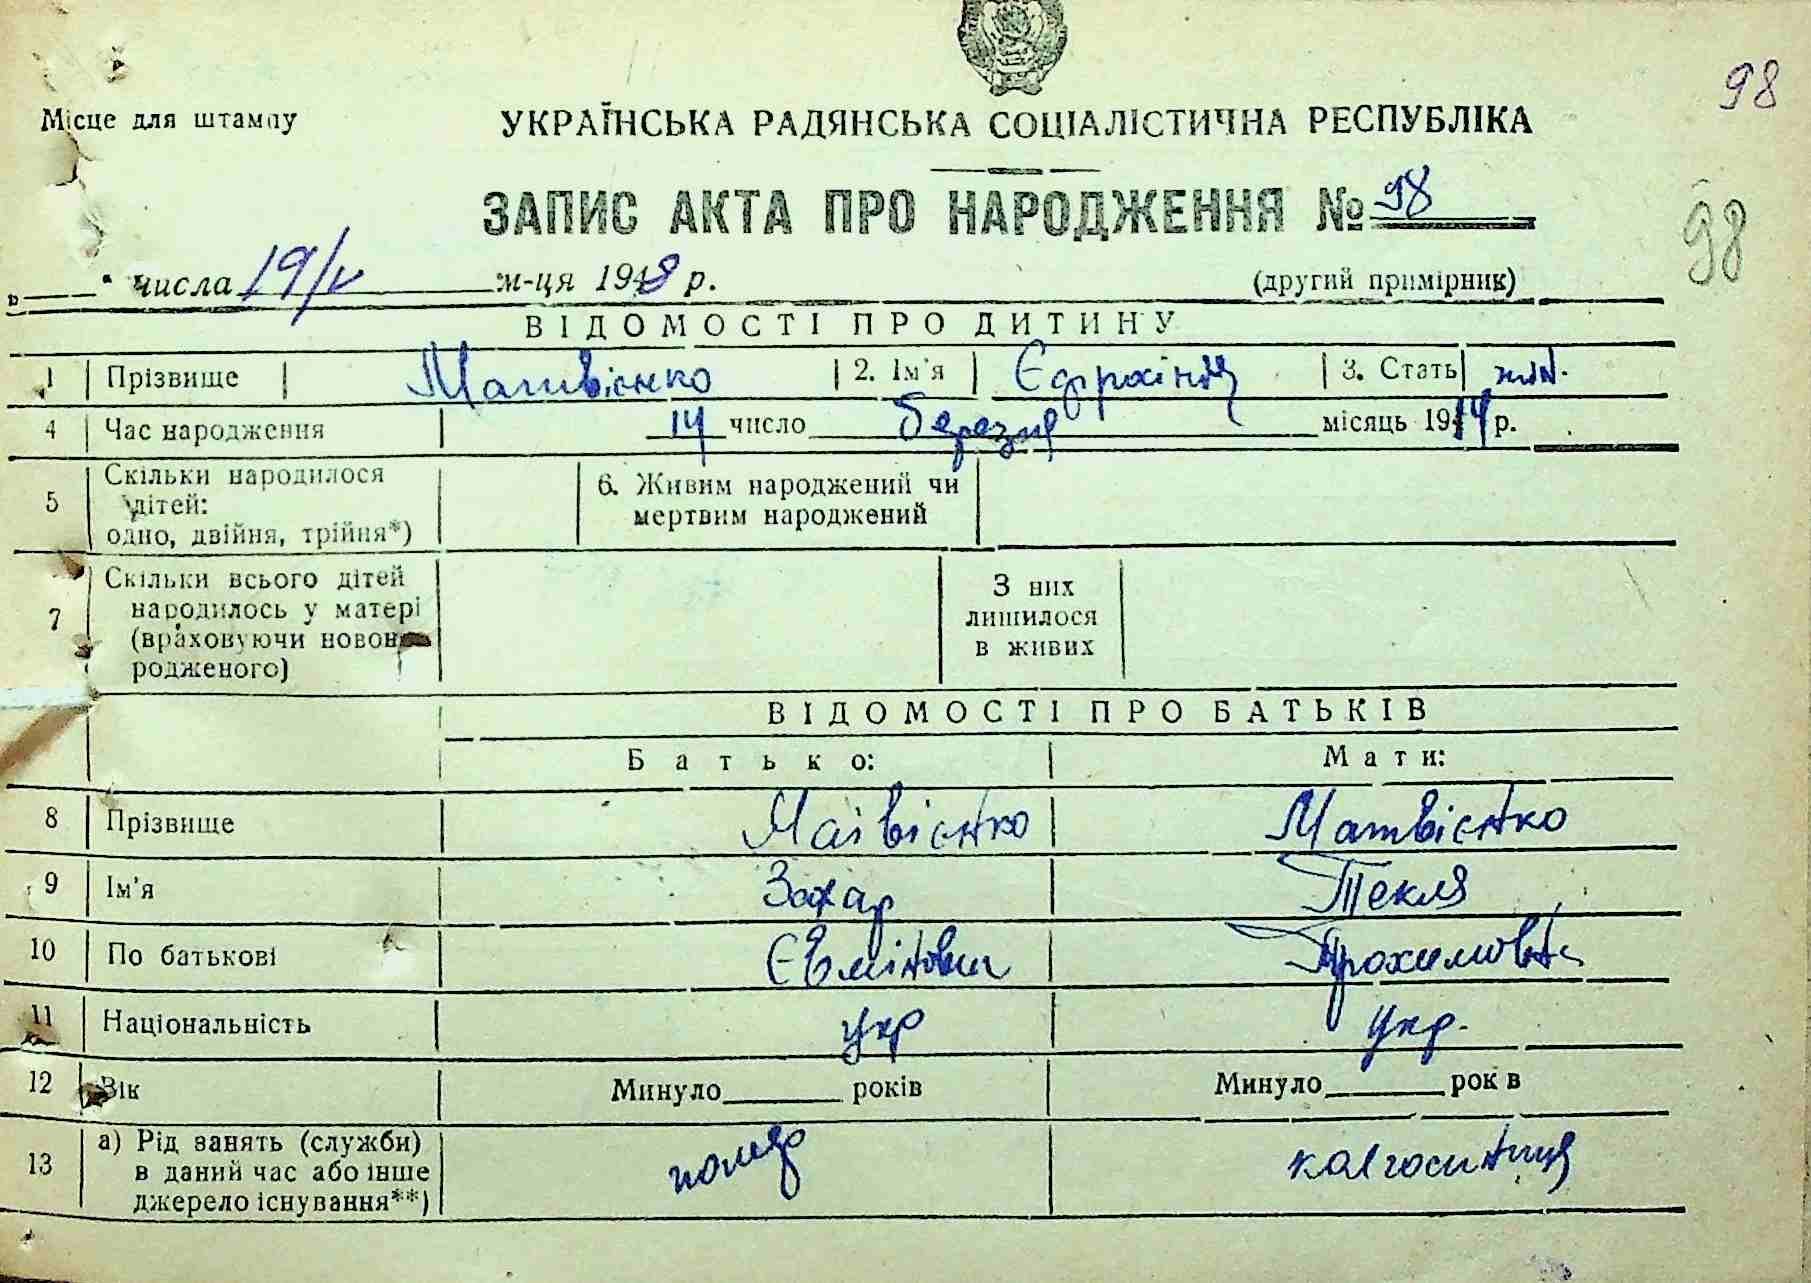 98
Місце для штампу
УКРАЇНСЬКА РАДЯНСЬКА СОЦІАЛІСТИЧНА РЕСПУБЛІКА
ЗАПИС АКТА ПРО НАРОДЖЕННЯ № 98
98
„ " числа 19/V м-ця 1948 р. (другий примірник)
ВІДОМОСТІ ПРО ДИТИНУ
1 Прізвище Матвієнко 2. Ім'я Єфросінія 3. Стать жін.
4 Час народження 14 число березня місяць 1914 р.
5 Скільки народилося дітей: одно, двійня, трійня*) 6. Живим народжений чи мертвим народжений
7 Скільки всього дітей народилось у матері (враховуючи новонародженого) З них лишилося в живих
ВІДОМОСТІ ПРО БАТЬКІВ
Батько: Мати:
8 Прізвище Матвієнко Матвієнко
9 Ім'я Захар Текля
10 По батькові Прохимовна
11 Національність укр укр.
12 Вік Минуло років Минуло рок в
13 а) Рід занять (служби) в даний час або інше джерело існування**) помер колгоспниця